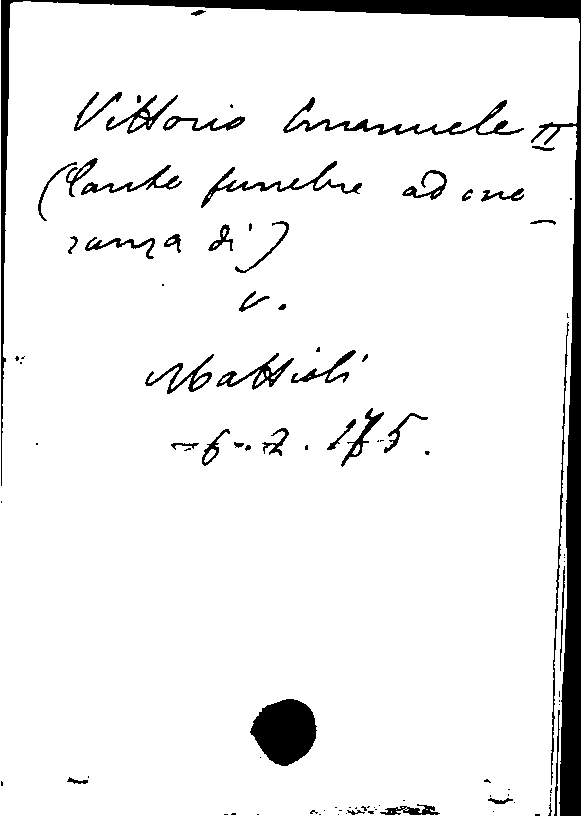 Vittorio Emanuele II
(Canto funebre ad ono_
ranza di)
v.
Mattioli
-6-.7.175.